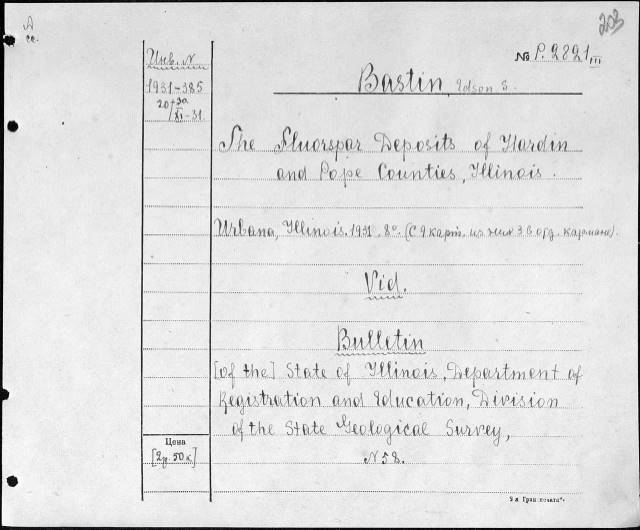 А
се.
203
Инв. N
1931-385
20+30/XI-31.
№ P.2821 III
Bastin, Edson S.
The Fluorspar Deposits of Hardin
and Pope Counties, Illinois.
Urbana, Illinois. 1931. 8º. (С 9 карт., из них 3 в отд. кармане).
Vid.
Bulletin
[of the] State of Illinois, Department of
Registration and Education, Division
of the State Geological Survey,
N 58.
Цена
[2р. 50к]